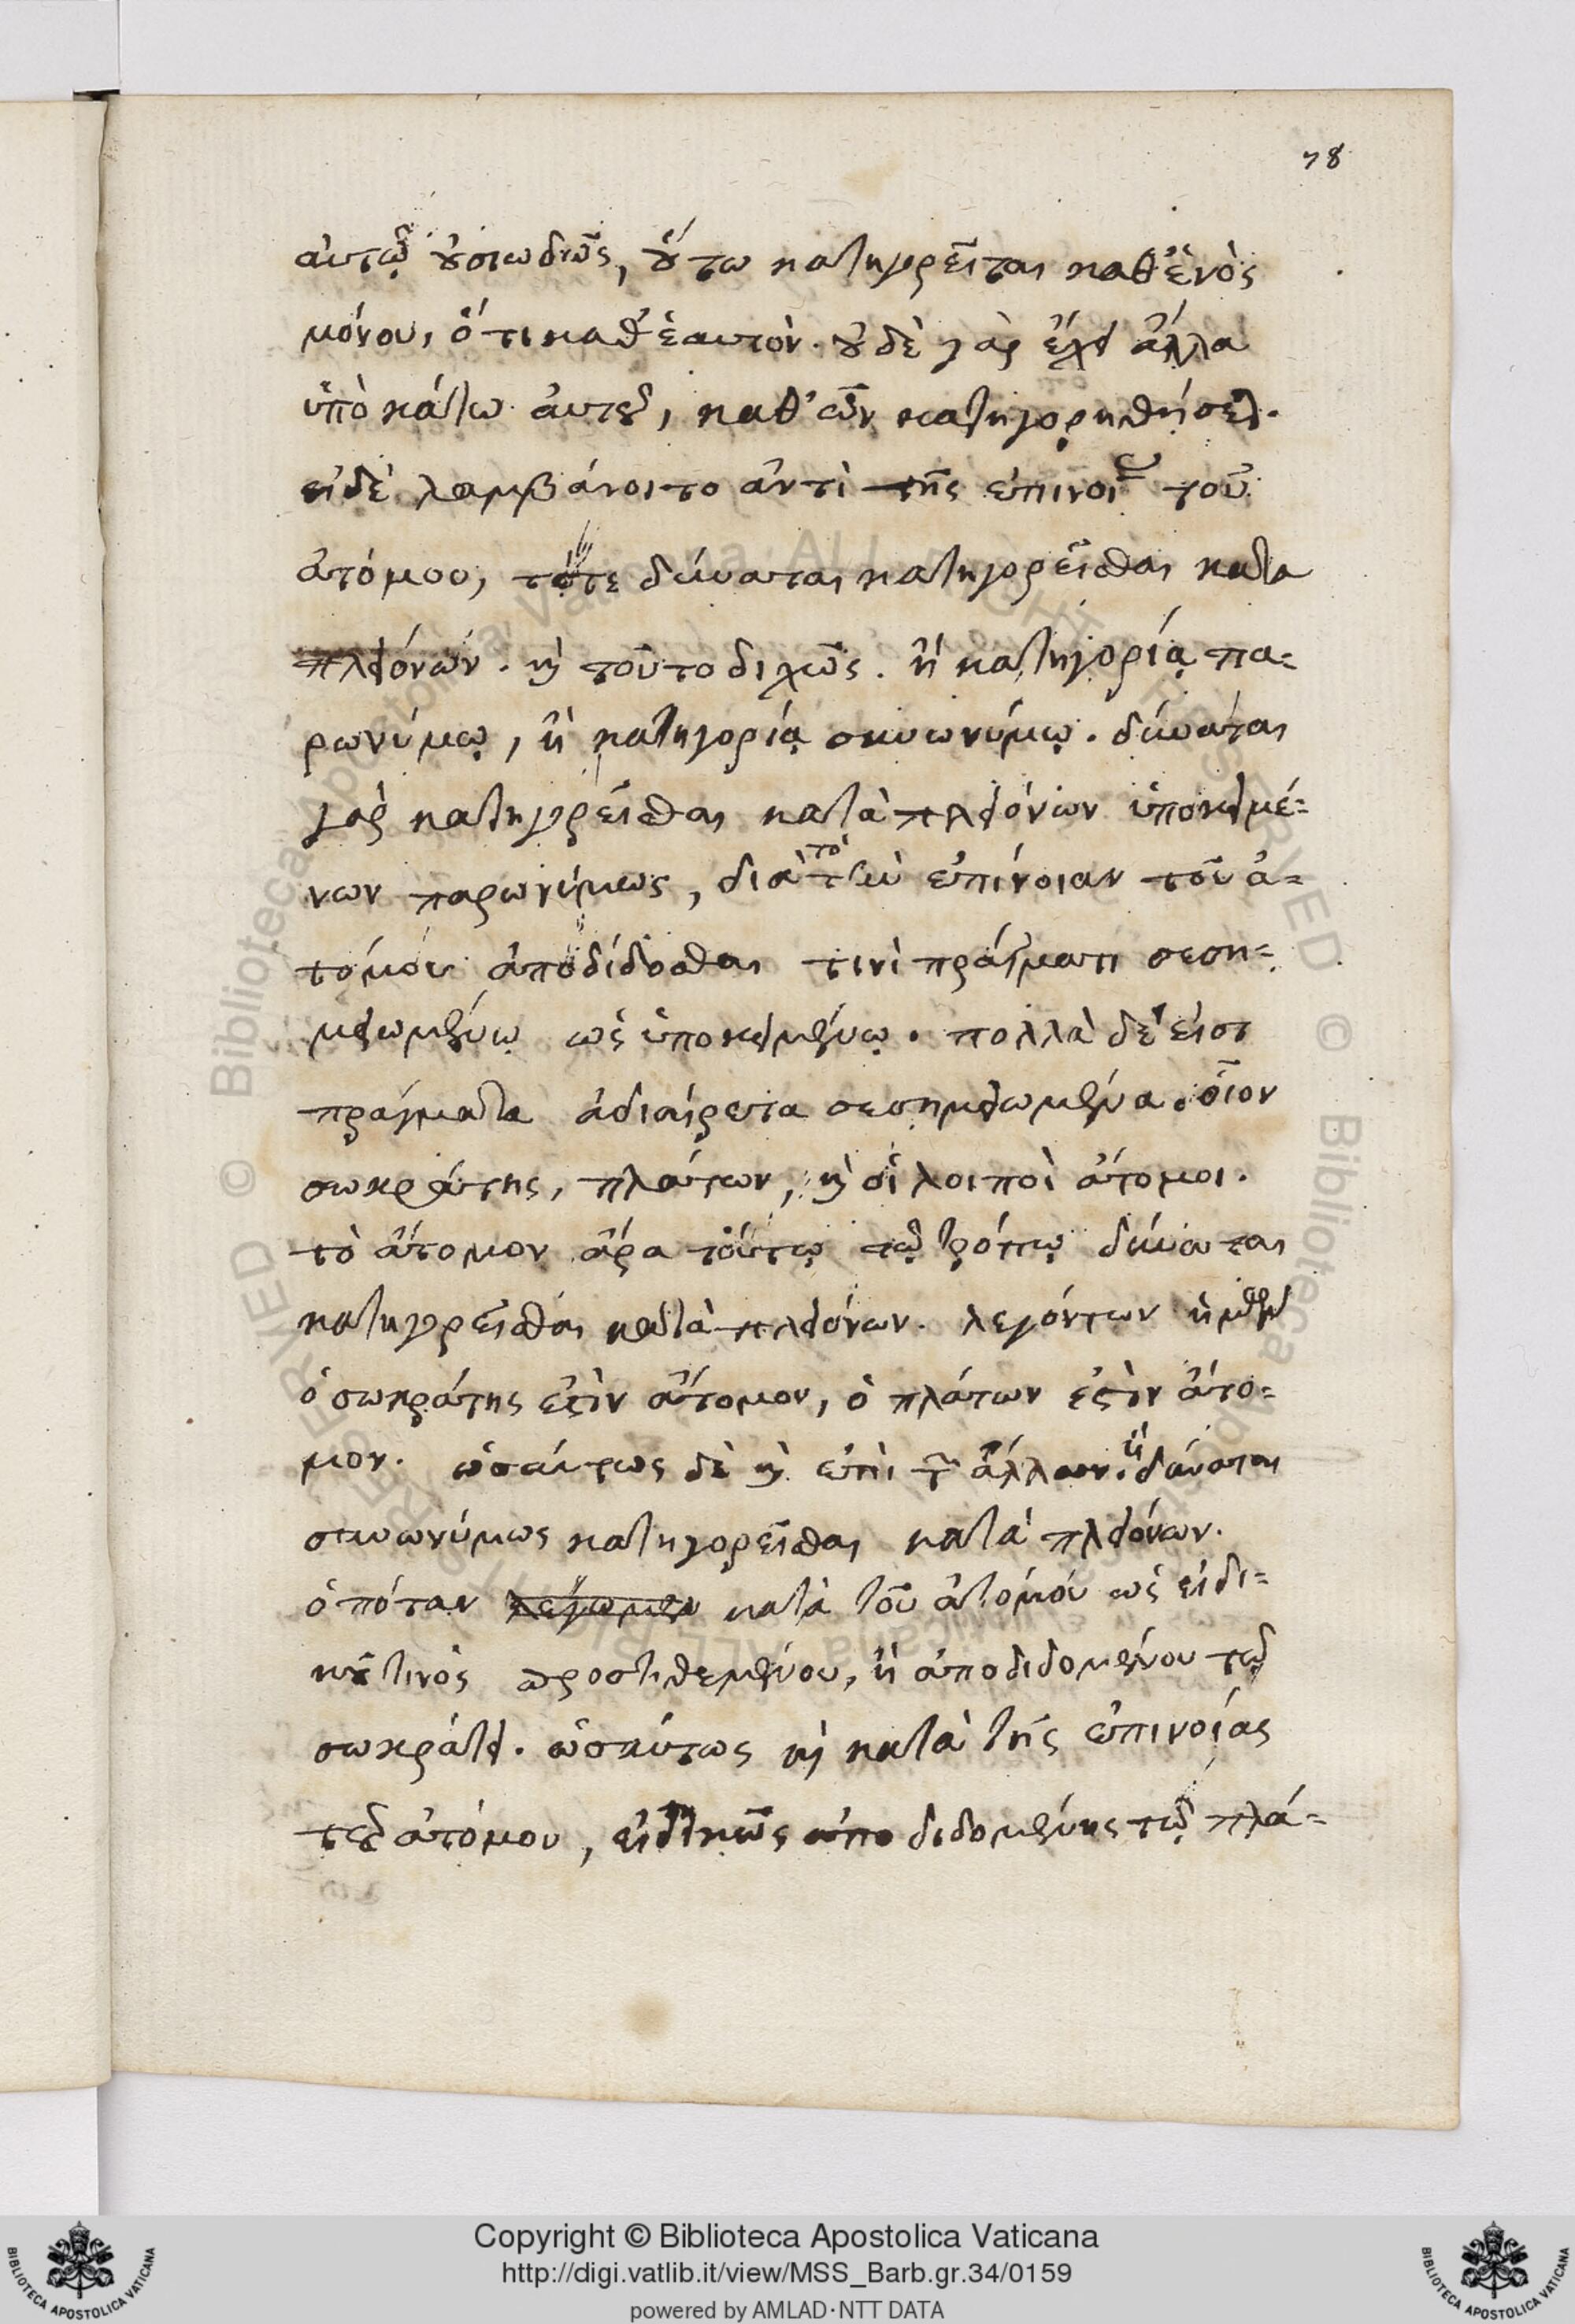 78
αὐτῷ οὐσιωδῶς, οὕτω κατηγορεῖται καθ' ἑνὸς
μόνου, ὅτι καθ' ἑαυτὸν. οὐδὲ γὰρ ἔχει ἄλλα
ὑποκάτω αὐτοῦ, καθ' ὧν κατηγορηθήσεται.
εἰ δὲ λαμβάνοιτο ἀντὶ τῆς ἐπινοίας τοῦ
ἀτόμου, τότε δύναται κατηγορεῖσθαι κατὰ
πλειόνων. καὶ τοῦτο διχῶς. ἢ κατηγορίᾳ πα=
ρωνύμῳ, ἢ κατηγορίᾳ συνωνύμῳ. δύναται
γὰρ κατηγορεῖσθαι κατὰ πλειόνων ὑποκειμέ=
νων παρωνύμως, διὰ τὸ τὴν ἐπίνοιαν τοῦ ἀ=
τόμου ἀποδίδοσθαι τινὶ πράγματι σεση=
μειωμένῳ ὡς ὑποκειμένῳ. πολλὰ δὲ εἰσι
πράγματα ἀδιαίρετα σεσημειωμένα. οἷον
σωκράτης, πλάτων, καὶ οἱ λοιποὶ ἄτομοι.
τὸ ἄτομον ἄρα τούτῳ τῷ τρόπῳ δύναται
κατηγορεῖσθαι κατὰ πλειόνων. λεγόντων ἡμῶν
ὁ σωκράτης ἐστὶν ἄτομον, ὁ πλάτων ἐστὶν ἄτο=
μον. ὡσαύτως δὲ καὶ ἐπὶ τῶν ἄλλων. ἢ δύναται
συνωνύμως κατηγορεῖσθαι κατὰ πλειόνων.
ὁπόταν λέγωμεν κατὰ τοῦ ἀτόμου ὡς εἰδι=
κοῦ τινὸς προστιθεμένου, ἢ ἀποδιδομένου τῷ
σωκράτει. ὡσαύτως καὶ κατὰ τῆς ἐπινοίας
τοῦ ἀτόμου, εἰδικῶς ἀποδιδομένης τῷ πλά=
Copyright © Biblioteca Apostolica Vaticana
http://digi.vatlib.it/view/MSS_Barb.gr.34/0159
powered by AMLAD·NTT DATA